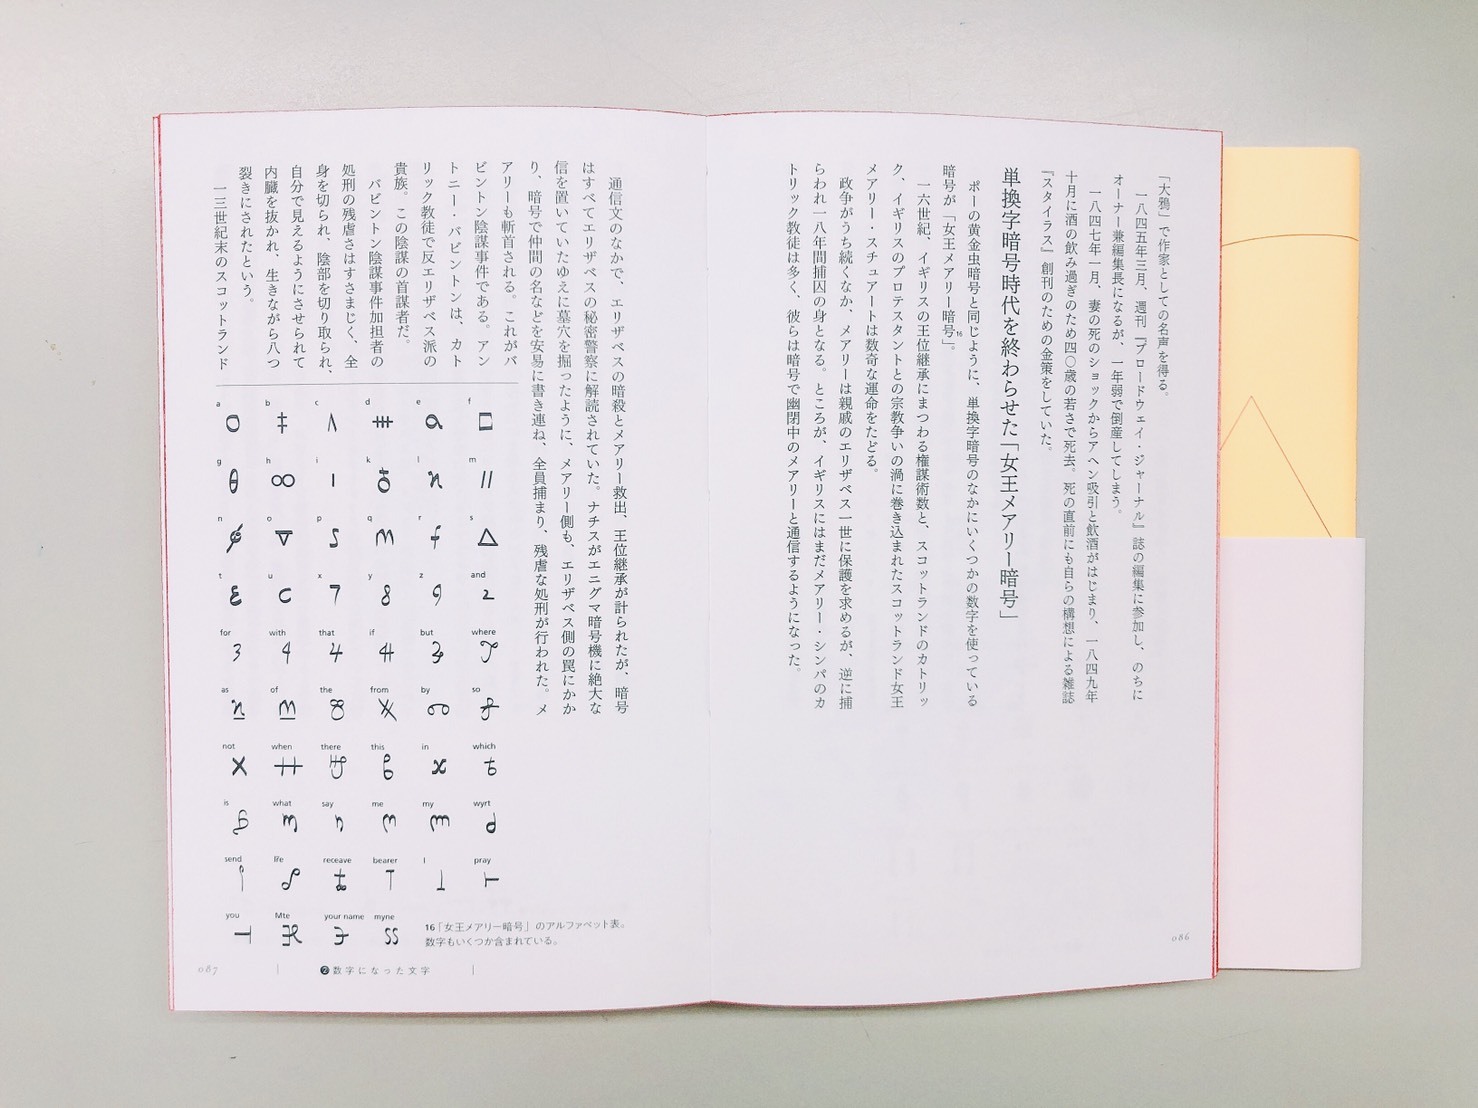 「大鴉」で作家としての名声を得る。
一八四五年三月、週刊『ブロードウェイ・ジャーナル』誌の編集に参加し、のちに
オーナー兼編集長になるが、一年弱で倒産してしまう。
一八四七年一月、妻の死のショックからアヘン吸引と飲酒がはじまり、一八四九年
十月に酒の飲み過ぎのため四〇歳の若さで死去。死の直前にも自らの構想による雑誌
『スタイラス』創刊のための金策をしていた。
単換字暗号時代を終わらせた「女王メアリー暗号」
ポーの黄金虫暗号と同じように、単換字暗号のなかにいくつかの数字を使っている
暗号が「女王メアリー暗号16」。
一六世紀、イギリスの王位継承にまつわる権謀術数と、スコットランドのカトリッ
ク、イギリスのプロテスタントとの宗教争いの渦に巻き込まれたスコットランド女王
メアリー・スチュアートは数奇な運命をたどる。
政争がうち続くなか、メアリーは親戚のエリザベス一世に保護を求めるが、逆に捕
らわれ一八年間捕囚の身となる。ところが、イギリスにはまだメアリー・シンパのカ
トリック教徒は多く、彼らは暗号で幽閉中のメアリーと通信するようになった。
086
通信文のなかで、エリザベスの暗殺とメアリー救出、王位継承が計られたが、暗号
はすべてエリザベスの秘密警察に解読されていた。ナチスがエニグマ暗号機に絶大な
信を置いていたゆえに墓穴を掘ったように、メアリー側も、エリザベス側の罠にかか
り、暗号で仲間の名などを安易に書き連ね、全員捕まり、残虐な処刑が行われた。メ
アリーも斬首される。これがバ
ビントン陰謀事件である。アン
トニー・バビントンは、カト
リック教徒で反エリザベス派の
貴族。この陰謀の首謀者だ。
バビントン陰謀事件加担者の
処刑の残虐さはすさまじく、全
身を切られ、陰部を切り取られ、
自分で見えるようにさせられて
内臓を抜かれ、生きながら八つ
裂きにされたという。
一三世紀末のスコットランド
a b c d e f
g h i k l m
n o p q r s
t u x y z and
for with that if but where
as of the from by so
not when there this in which
is what say me my wyrt
send lfe receave bearer I pray
you Mte your name myne
16「女王メアリー暗号」のアルファベット表。
数字もいくつか含まれている。
087
❷数字になった文字